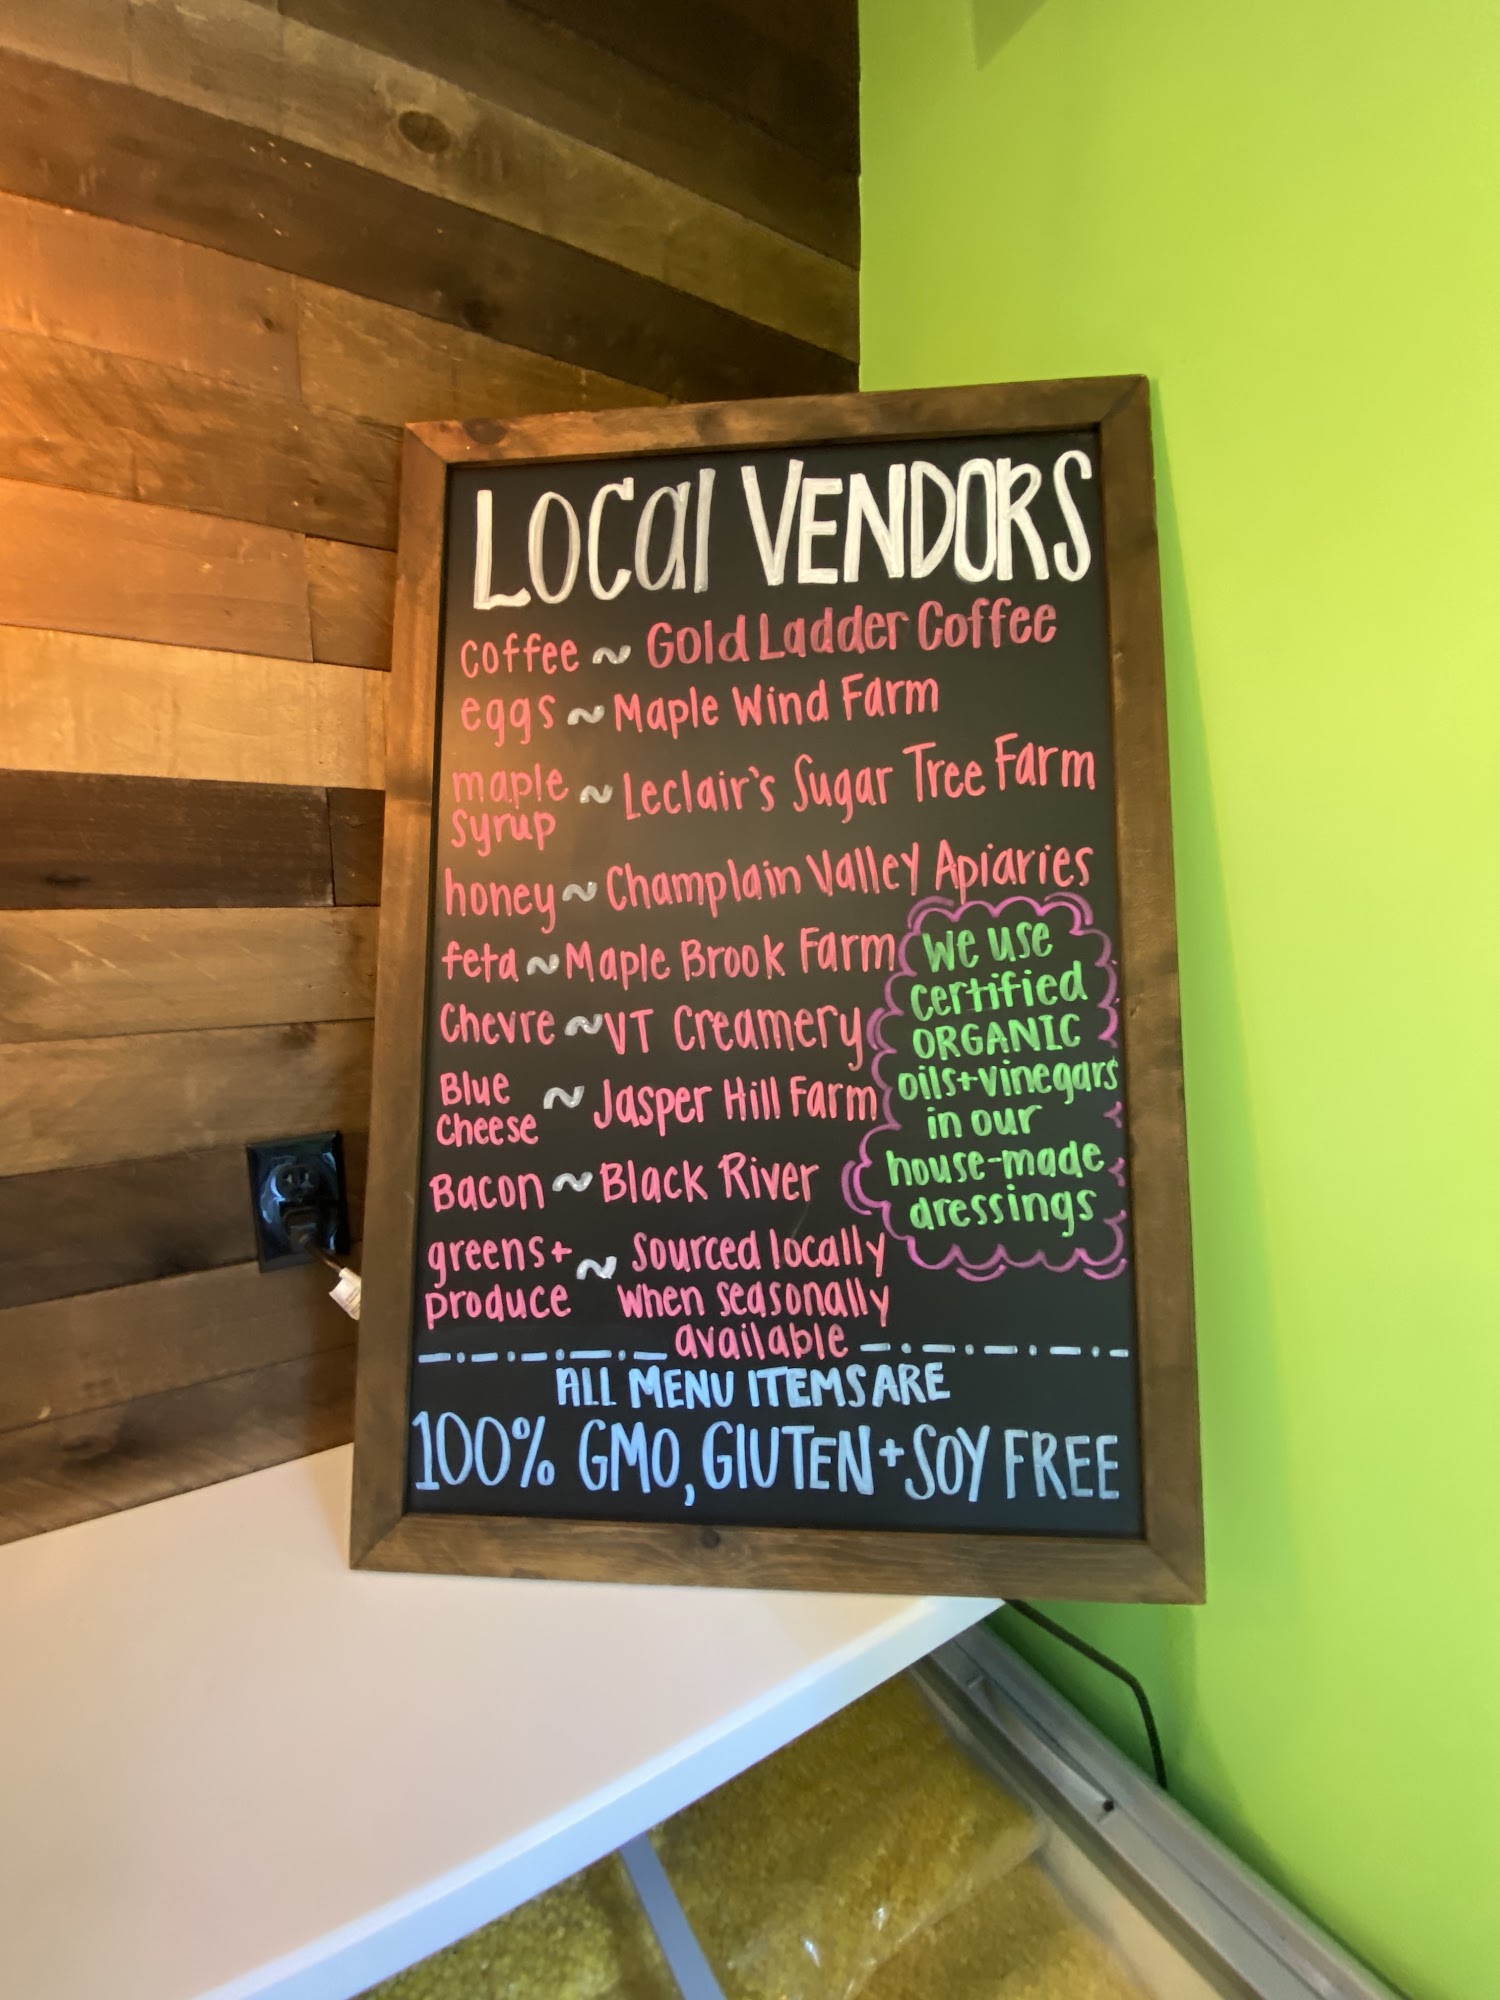 LOCal VENDORS
coffee ~ Gold Ladder Coffee
eggs ~ Maple Wind Farm
maple syrup ~ Leclair's Sugar Tree Farm
honey ~ Champlain Valley Apiaries
feta ~ Maple Brook Farm
Chevre ~ VT Creamery
Blue Cheese ~ Jasper Hill Farm
Bacon ~ Black River
greens + produce ~ Sourced locally
when seasonally
available
We use
certified
ORGANIC
oils+vinegars
in our
house-made
dressings
ALL MENU ITEMS ARE
100% GMO, GlUTEN + SOY FREE